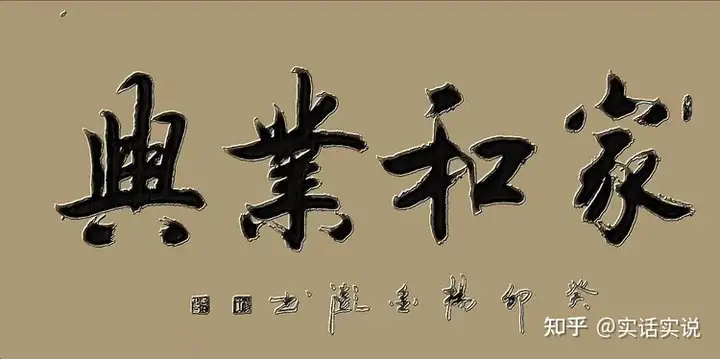 家和業興
癸卯楊金书
知乎 @实话实说